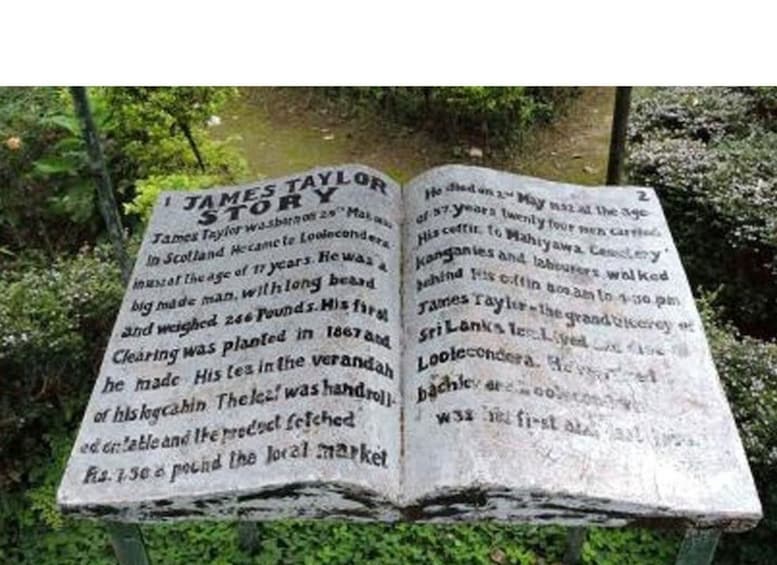 1 JAMES TAYLOR
STORY
James Taylor was born on 29th Mar
in Scotland. He came to Loolecondera
in at the age of 17 years. He was a
big made man, with long beard
and weighed 246 Pounds. His first
Clearing was planted in 1867 and
he made His tea in the verandah
of his log cabin The leaf was handroll-
ed on table and the product fetched
Rs. 1.50 a pound the local market
2
He died on 2nd May 1892 at the age
of 57. years twenty four men carried
His coffin to Mahiyawa Cemetery
kanganies and labourers walked
behind his coffin 8.00 am to 4-30. pm
James Taylor - the grand viceroy of
Sri Lanka tea. Lived and
Loolecondera. He
bachlor
was his first and last